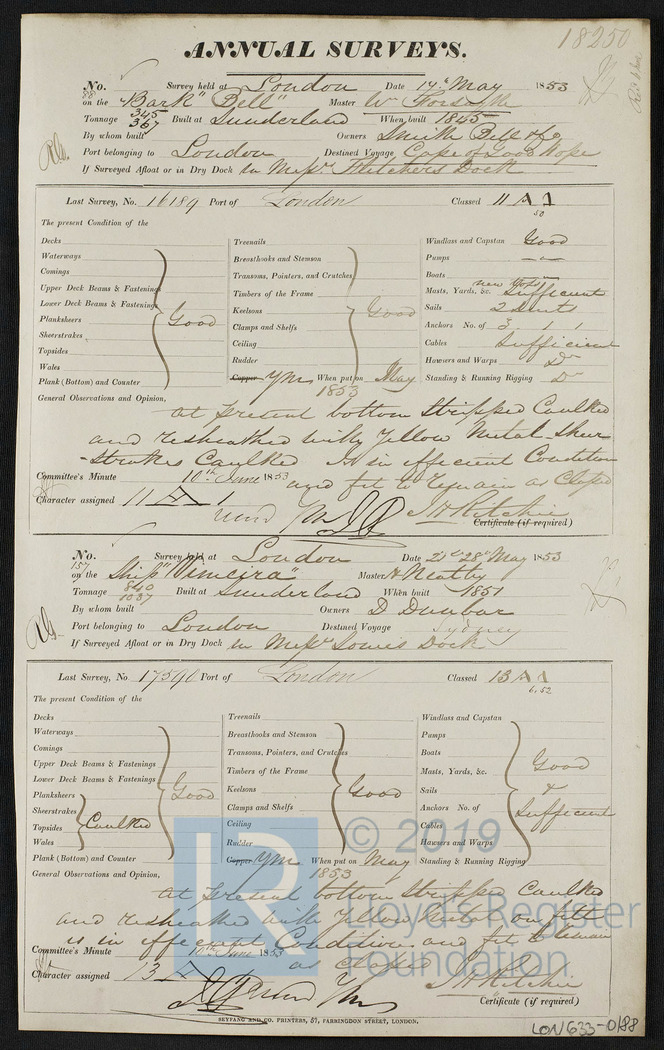 18250
ANNUAL SURVEYS.
No. 88 Survey held at London Date 14th May 1853
on the Bark "Bell" Master Wm Forsyth
Tonnage 345 367 Built at Sunderland When built 1845
By whom built Owners Smith Bell & Co
Port belonging to London Destined Voyage Cape of Good Hope
If Surveyed Afloat or in Dry Dock in Messrs Fletchers Dock
Last Survey, No. 16189 Port of London Classed 11 A 1
50
The present Condition of the
Decks
Waterways
Comings
Upper Deck Beams & Fastenings
Lower Deck Beams & Fastenings
Planksheers
Sheerstrakes
Topsides
Wales
Plank (Bottom) and Counter
Good
Treenails
Breasthooks and Stemson
Transoms, Pointers, and Crutches
Timbers of the Frame
Keelsons
Clamps and Shelfs
Ceiling
Rudder
Good
Copper YM When put on May 1853
Windlass and Capstan Good
Pumps
Boats
Masts, Yards, &c. Sufficient
Sails 2 Suits
Anchors No. of 3 1 1
Cables Sufficient
Hawsers and Warps Do
Standing & Running Rigging Do
General Observations and Opinion,
at present bottom Stripped Caulked
and resheathed with Yellow Metal - Sheer
-Strakes Caulked Is in efficient Condition
and fit to remain as Classed
Committee's Minute 10th June 1853
Character assigned 11 A 1
J H Ritchie
Certificate (if required)
No. 157 Survey held at London Date 21st 28th May 1853
on the Ship "Vimeira" Master H Neatby
Tonnage 840 1037 Built at Sunderland When built 1851
By whom built Owners D Dunbar
Port belonging to London Destined Voyage Sydney
If Surveyed Afloat or in Dry Dock in Messrs Dock
Last Survey, No. 17590 Port of London Classed 13 A 1
6.52
The present Condition of the
Decks
Waterways
Comings
Upper Deck Beams & Fastenings
Lower Deck Beams & Fastenings
Planksheers
Sheerstrakes
Topsides Caulked
Wales
Plank (Bottom) and Counter
Good
Treenails
Breasthooks and Stemson
Transoms, Pointers, and Crutches
Timbers of the Frame
Keelsons
Clamps and Shelfs
Ceiling
Rudder
Good
Copper YM When put on May 1853
Windlass and Capstan
Pumps
Boats
Masts, Yards, &c.
Sails
Anchors No. of
Cables
Hawsers and Warps
Standing & Running Rigging
Good
&
Sufficient
General Observations and Opinion,
at present bottom Stripped Caulked
and resheathed with Yellow Metal on felt
is in efficient Condition and fit to remain
as Classed
Committee's Minute 10th June 1853
Character assigned 13 A 1
J H Ritchie
Certificate (if required)
SEYFANG AND CO. PRINTERS, 57, FARRINGDON STREET, LONDON.
LON 633-0188
© 2019
Lloyd's Register
Foundation